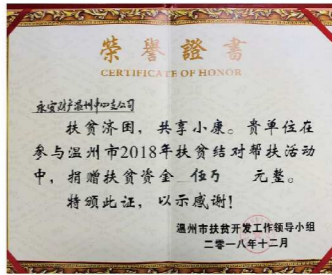 榮譽證書
CERTIFICATE OF HONOR
永安财产温州中心支公司
扶贫济困，共享小康。贵单位在
参与温州市2018年扶贫结对帮扶活动
中，捐赠扶贫资金 伍万 元整。
特颁此证，以示感谢！
温州市扶贫开发工作领导小组
二零一八年十二月